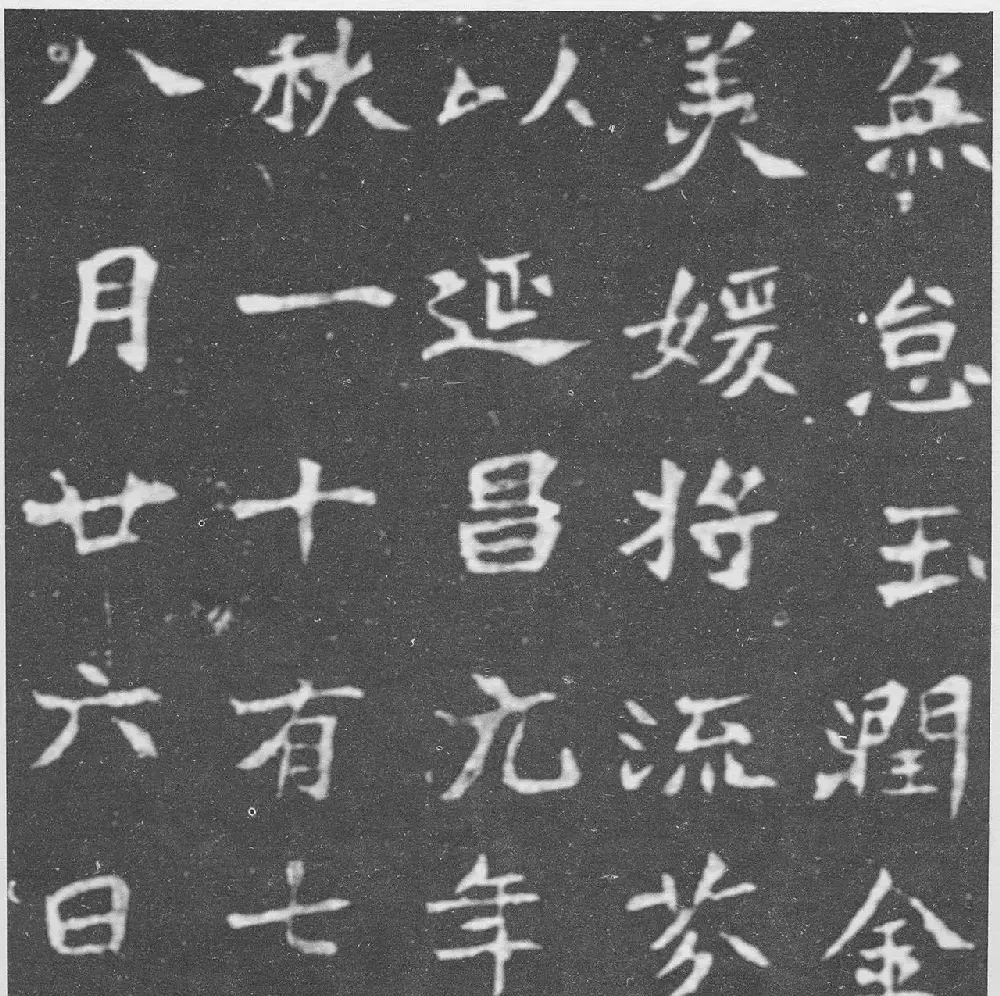 無怠玉潤金
美媛將流芬
以延昌元年
秋一十有七
八月廿六日